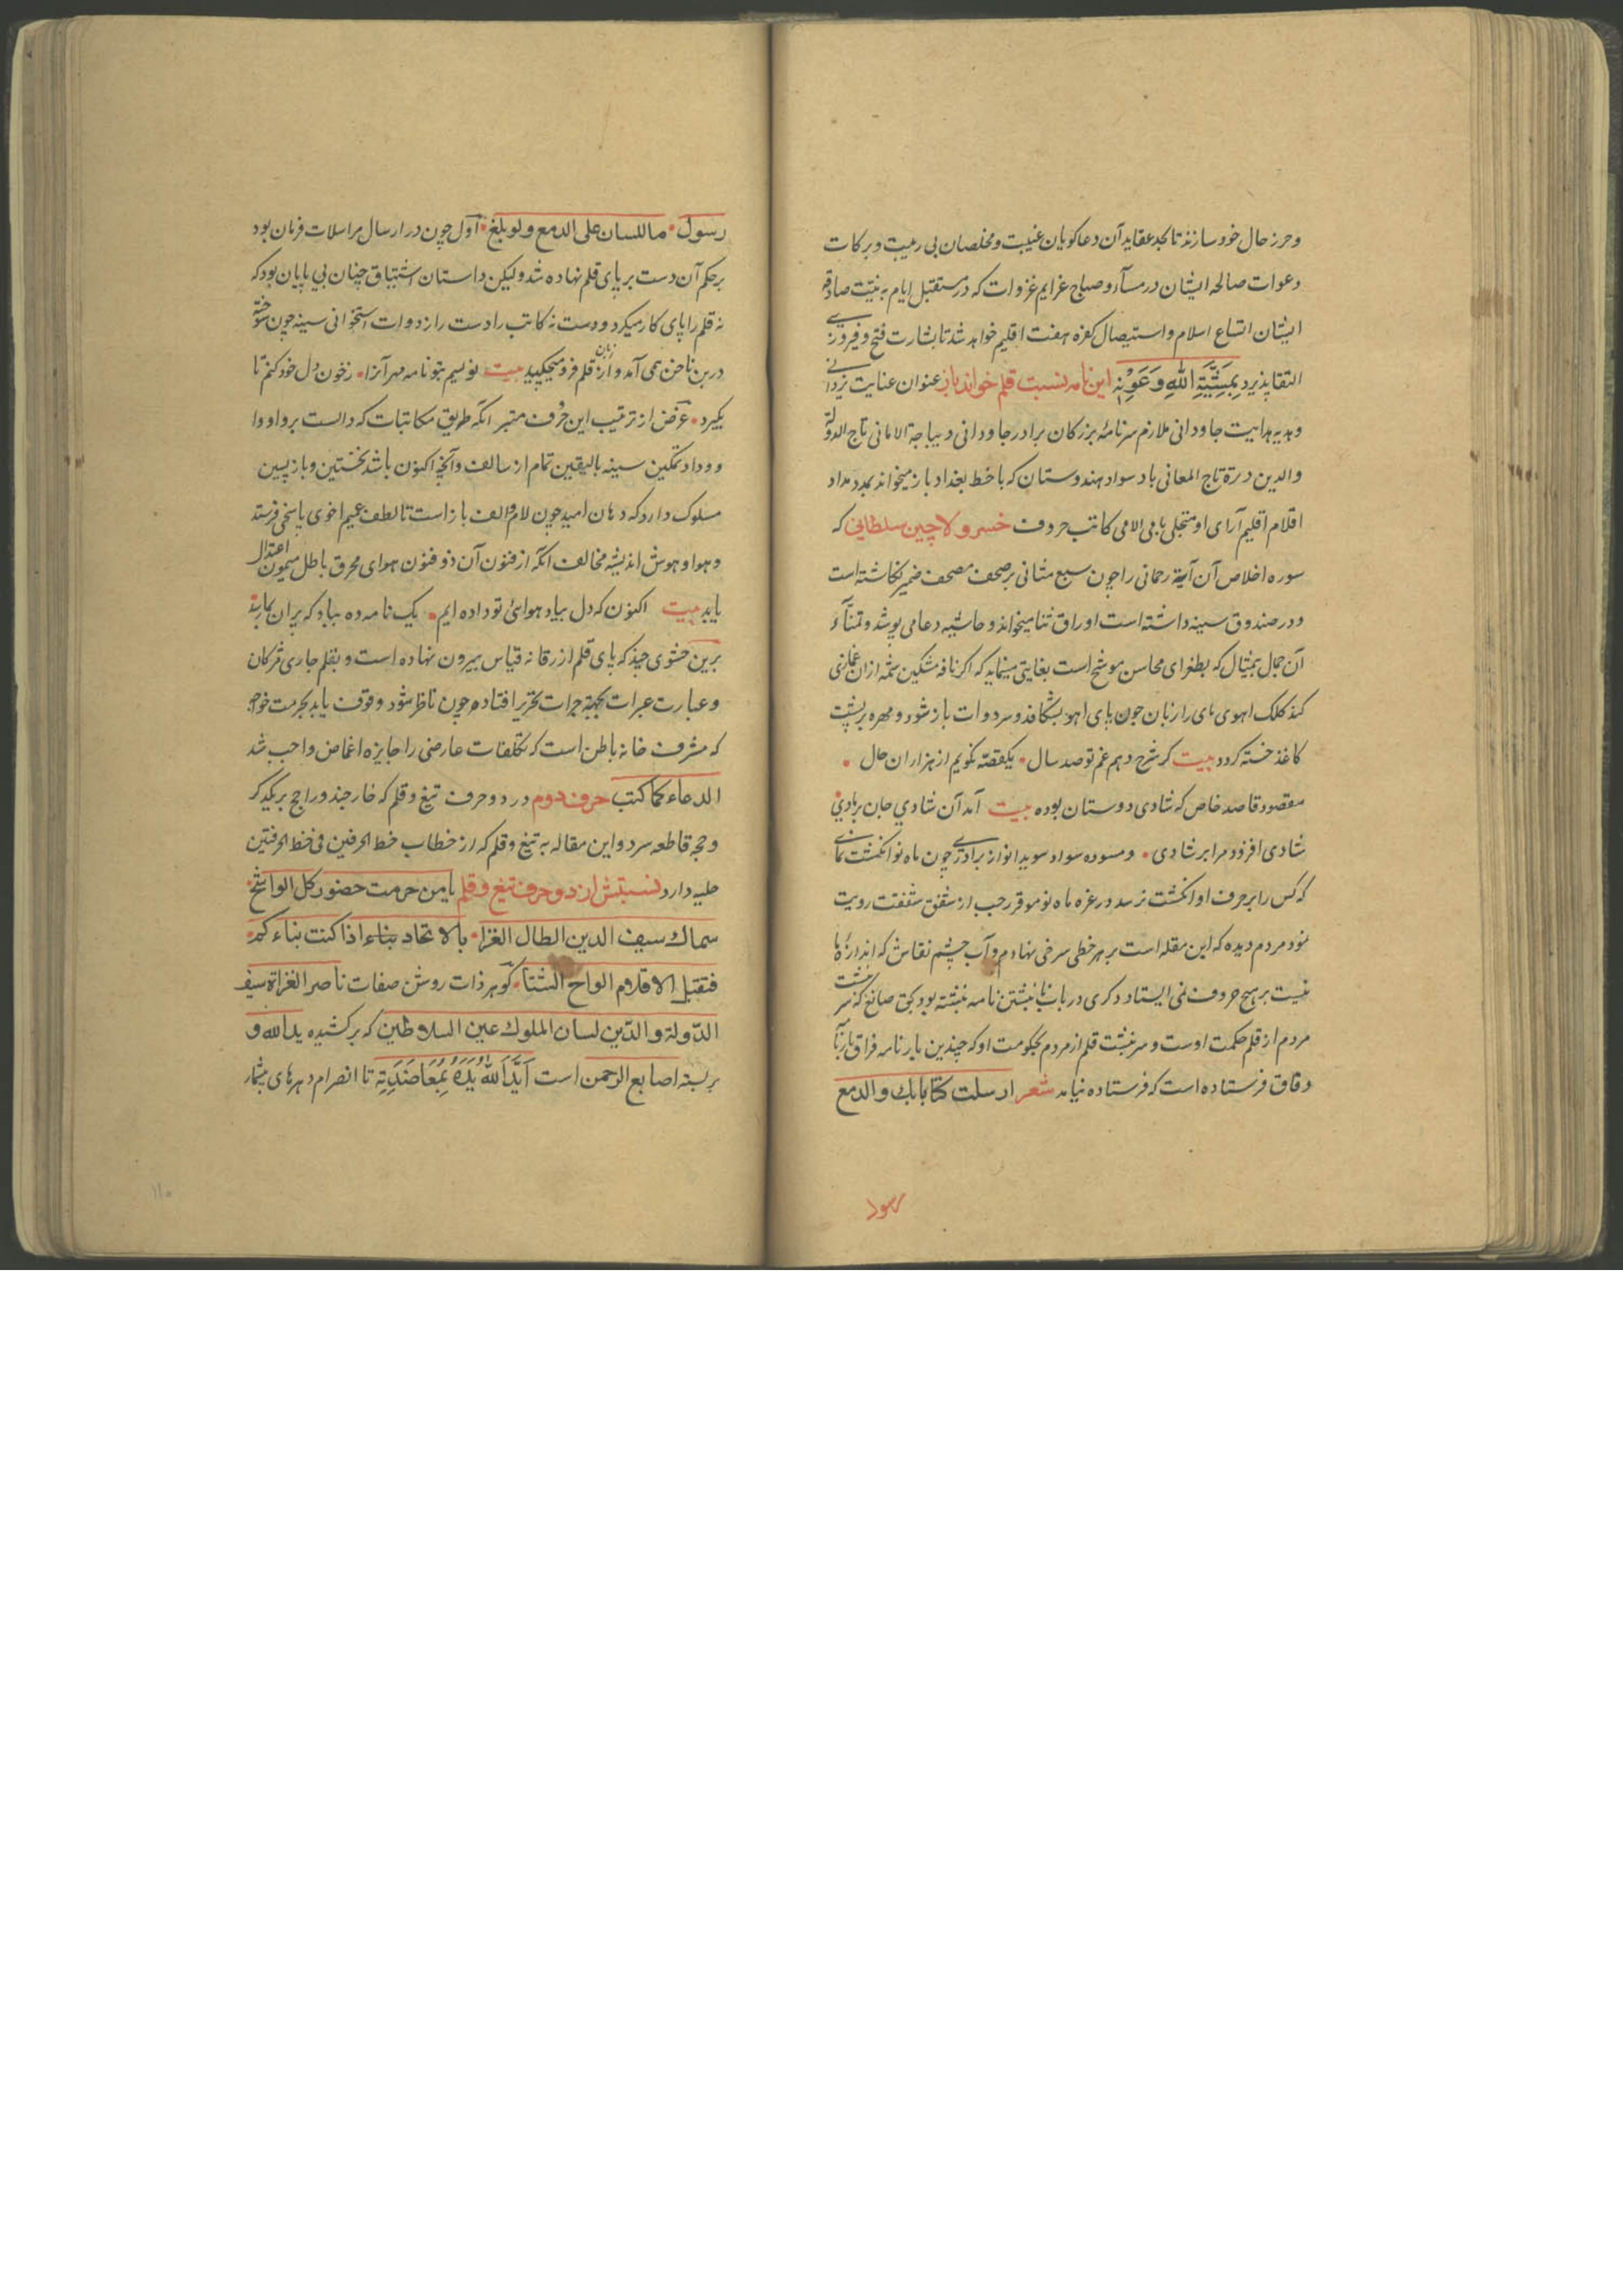 وحرز حال خود سازند تا بجد عقاید آن دعا کویان غیبت و مخلصان بی ریبت و برکات
دعوات صالحه ایشان در مسآء و صباح عزایم غزوات که در مستقبل ایام به نیّت صادقه
ایشان اتساع اسلام و استیصال کفره هفت اقلیم خواهد شد تا بشارت فتح و فیروزی
التقا پذیرد بِمَشِیَّةِ اللهِ وَعَوْنِه این نامه نسبت قلم خواند باز عنوان عنایت یزدانی
و هدیه هدایت جاودانی ملازم سرنامهٔ بزرکان برادر جاودانی دیباجة الامانی تاج الدولة
والدین درة تاج المعانی باد سواد هندوستان که با خط بغداد باز میخواند بمدد مداد
اقلام اقلیم آرای او متجلی بامی الامی کاتب حروف خسرو لاچین سلطانی که
سوره اخلاص آن آیة رحمانی را چون سبع مثانی بر صحف مصحف ضمیر نکاشته است
و در صندوق سینه داشته است اوراق ثنا میخواند و حاشیه دعا می پوشد و تمنّآء
آن جمال بیمثال که بطغرای محاسن موشح است بغایتی مینماید که اکر نافه مشکین شمه ازان غمازی
کند کلک اهوی های را زبان چون پای اهو بشکافد و سر دوات باز شود و مهره بر پشت
کاغذ خسته کردد بیت کر شرح دهم غم تو صد سال • یکقصّه نکویم از هزاران حال •
مقصود قاصد خاص که شادی دوستان بوده بیت آمد آن شادی جان بر بادی
شادی افزود مرا بر شادی • و مسوده سواد سویدا نواز برادری چون ماه نو انکشت نمای
که کس را بر حرف او انکشت نرسد در غره ماه نو موقر رجب از شفق شفقت رویت
نمود مردم دیده که ابن مقله است بر هر خطی سرخی نهادم و آب چشم نقاش که اندازهٔ ما
نیست بر هیچ حروف نمی ایستاد دکری در باب نا نبشتن نامه نبشته بود بحق صانع که سر نبشت
مردم از قلم حکمت اوست و سرنبشت قلم از مردم بحکومت او که چندین بار نامه فراق بارنآ
دقاق فرستاده است که فرستاده نیامد شعر ارسلت کتابا بک والدمع
رسول
رسول • ما للسان علی الدمع ولو بلغ • اوّل چون در ارسال مراسلات فرمان بود
بر حکم آن دست بر پای قلم نهاده شد ولیکن داستان اشتیاق چنان بی پایان بود که
نه قلم را پای کار میکرد و دست نه کاتب را دست راز دوات استخوانی سینه چون سوخته
در بن ناخن همی آمد و از زبان قلم فرو میچکید بیت نویسم بتو نامه مهر آنرا • ز خون دل خود کنم تا
بکیرد • غرض از ترتیب این حروف متبر انکه طریق مکاتبات که دانست بر واو وا
و وداد تمکین سینه بالیقین تمام از سالف و آنچه اکنون باشد نخستین و باز پسین
مسلوک دارد که دهان امید چون لام و الف باز است تا لطف عمیم اخوی پاسخی فرستد
و هوا و هوش اندیشه مخالف انکه از فنون آن ذو فنون هوای محرق باطل سیمون اعتدال
یابد بیت اکنون که دل بیاد هوائ تو داده ایم • یک نامه ده بباد که بر ان
برین حشوی چند که پای قلم از رقانه قیاس بیرون نهاده است و بقلم جاری
و عبارت عبرات بجهة جرات تحریر افتاده چون ناظر شود وقوف یابد بحرمت خواجه
که مشرف خانه باطن است که تکلفات عارضی را جایزه اغماض واجب شد
الدعاء کما کتب حرف دوم در دو حرف تیغ و قلم که خارجند و راجح بر یکدکر
و حجر قاطعه سرد و این مقاله به تیغ و قلم که از خطاب خط الحرفین فی خط الحرفتین
حلیه دارد نسبتش از دو حرف تیغ و قلم یا من حرمت حضور کل الواشح •
سماک سیف الدین الطال الغزا • بالاتحاد بناء اذا کنت بناءکم •
فتقبل الاقلام الواح الشتا • کوهر ذات روشن صفات ناصر الغزاة سیف
الدّولة والدّین لسان الملوک عین السلاطین که برکشیده ید الله و
بر بسته اصابع الرحمن است اَیَّدَ اللهُ یَدَهُ بِمَعَاضَدَتِهِ تا انصرام دهرهای بیشمار
۱۱۰